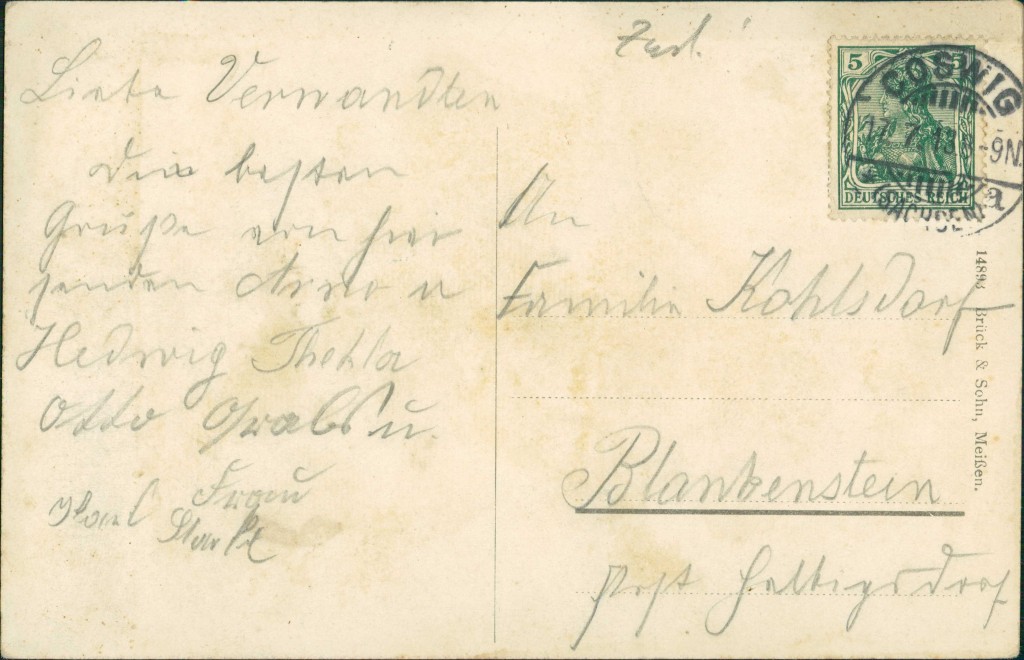 Liebe Verwandten
Die besten
Grüße von hier
senden Arno u
Hedwig Thekla
Otto Grabs u.
Frau
Karl Starke
5 5
DEUTSCHES REICH
COSWIG
17.7.13 8-9N.
(SACHSEN) a
An
Familie Kohlsdorf
Blankenstein
Post Helbigsdorf
14893 Brück & Sohn, Meißen.